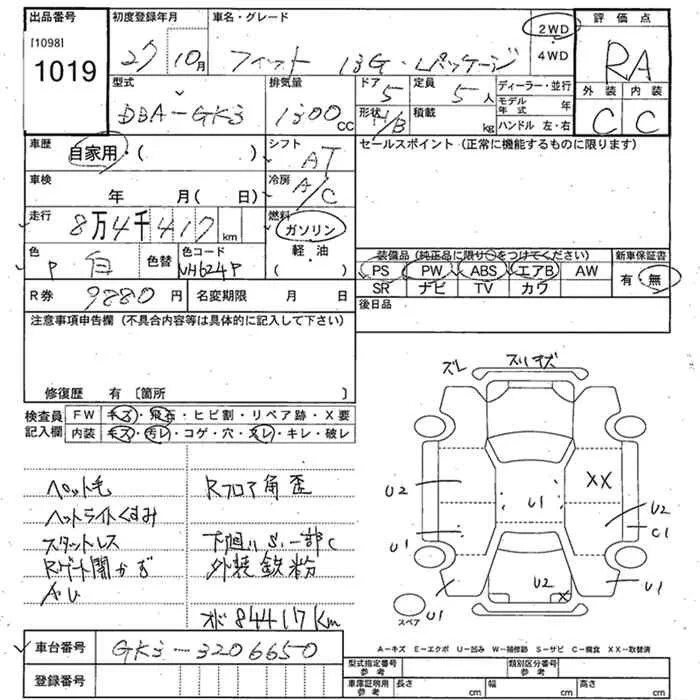 出品番号 初度登録年月 車名・グレード 評価点
[1098]
1019
27 10月 フィット 13G・Lパッケージ 2WD 4WD RA
型式 排気量 ドア 定員 ディーラー・並行 外装 内装
DBA-GK3 1300CC 5 5人 モデル年式 年 C C
形状 H/B 積載 kg ハンドル 左・右
車歴 自家用・( ) シフト AT セールスポイント(正常に機能するものに限ります)
車検 年 月( 日) 冷房 A/C
走行 8万4千417km 燃料 ガソリン・軽・油 ( )
色 P白 色替 色コード NH624P
装備品(純正品に限り○をつけてください) 新車保証書
PS PW ABS エアB AW 有・無
SR ナビ TV カワ
R券 9880円 名変期限 月 日 後日品
注意事項申告欄(不具合内容等は具体的に記入して下さい)
修復歴 有〔箇所 〕
検査員記入欄 FW キズ・飛石・ヒビ割・リペア跡・X要
内装 キズ・汚レ・コゲ・穴・スレ・キレ・破レ
ズレ スリキズ
ペット毛 Rフロア角歪
ヘッドライトくすみ
スタットレス 下廻りS、一部C
外装鉄粉
オド84417km
U2
XX
U1
U2
C1
U1
U2
X
U1
U1
スペア
A-キズ E-エクボ U-凹み W-補修跡 S-サビ C-腐食 XX-取替済
車台番号 GK3-3206650
登録番号
型式指定番号参考 類別区分番号参考
車庫証明用参考 長さ cm 幅 cm 高さ cm